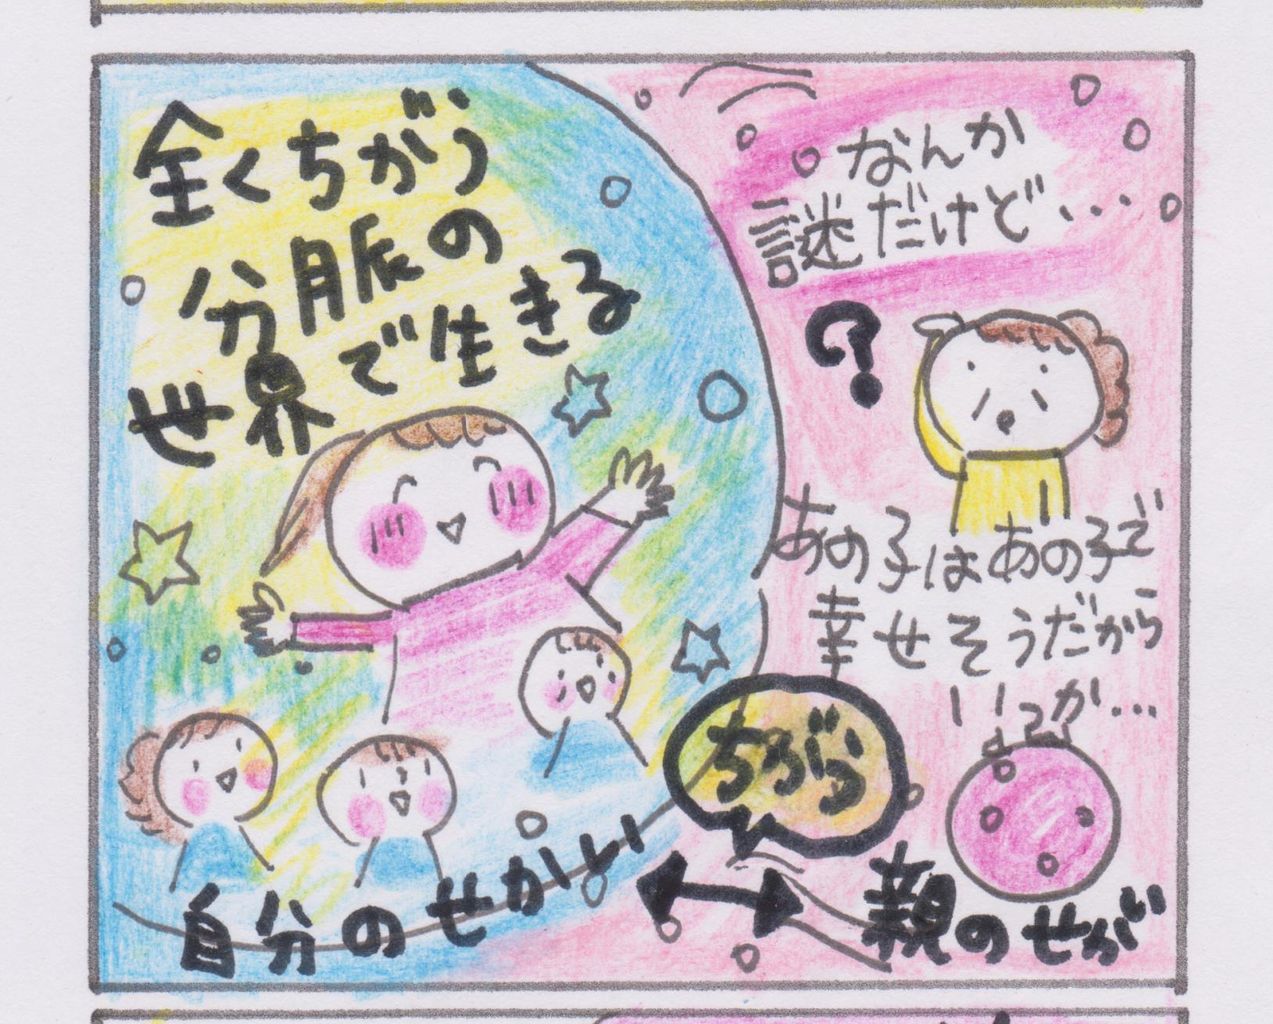 全くちがう
分脈の
世界で生きる
なんか
謎だけど…
?
あの子はあの子で
幸せそうだから
いっか…
ちがう
自分のせかい
親のせかい